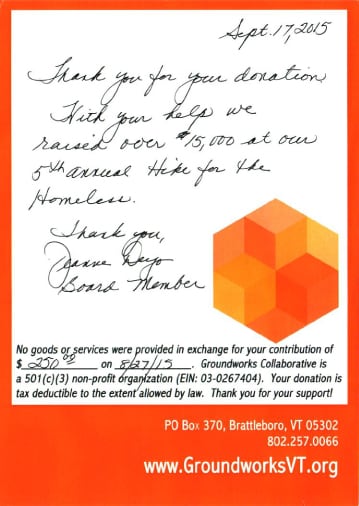 Sept. 17, 2015
Thank you for your donation.
With your help we
raised over $15,000 at our
5th annual Hike for the
Homeless.
Thank you,
Jeanne Deyo
Board Member
No goods or services were provided in exchange for your contribution of
$ 250.00 on 8/27/15. Groundworks Collaborative is
a 501(c)(3) non-profit organization (EIN: 03-0267404). Your donation is
tax deductible to the extent allowed by law. Thank you for your support!
PO Box 370, Brattleboro, VT 05302
802.257.0066
www.GroundworksVT.org